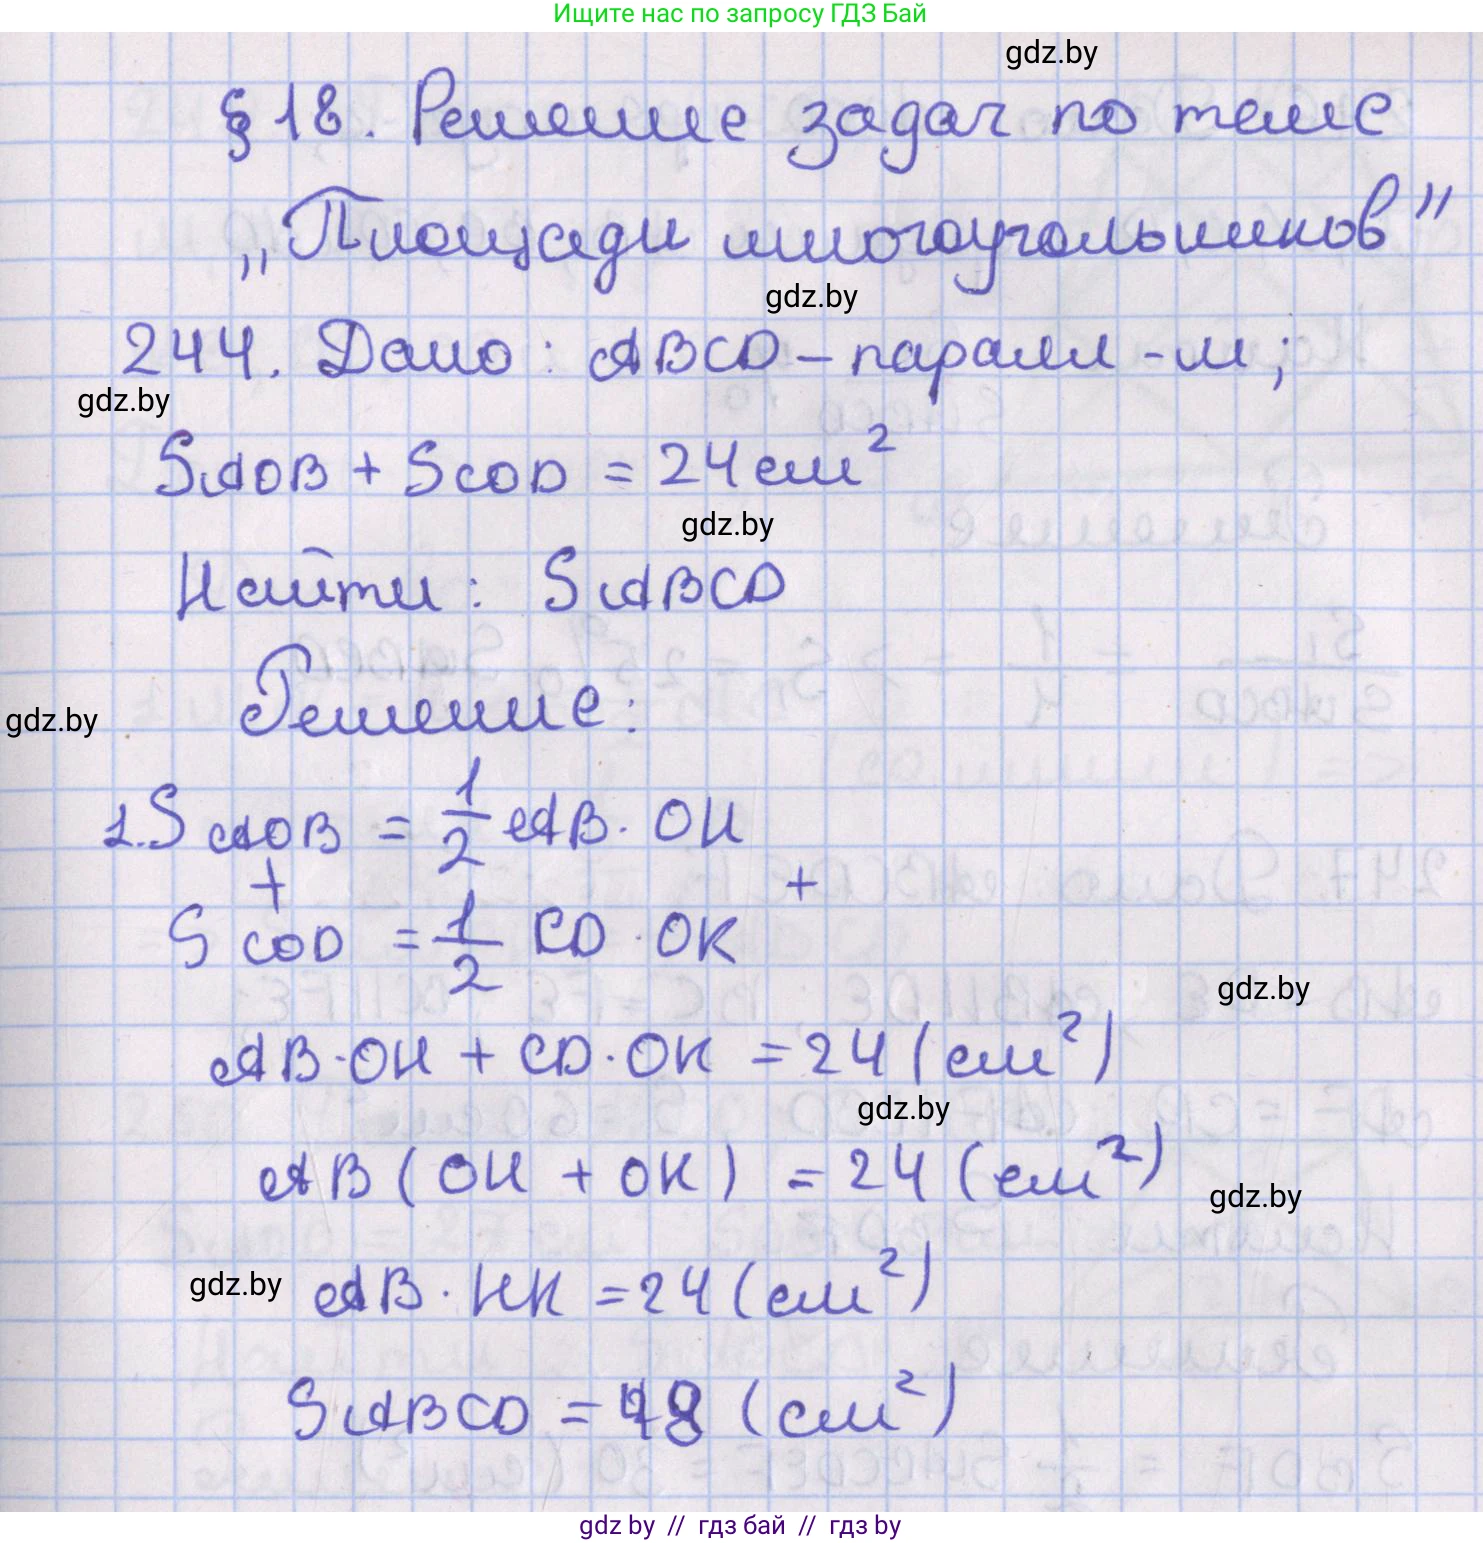 Ищите нас по запросу ГДЗ Бай
gdz.by
§ 18. Решение задач по теме
„Площади многоугольников"
gdz.by
244. Дано: ABCD – паралл-м;
gdz.by
SAOB + SCOD = 24 см²
gdz.by
Найти: SABCD
Решение:
gdz.by
1. SAOB = 1/2 AB · OH
+ +
SCOD = 1/2 CD · OK
gdz.by
AB · OH + CD · OK = 24 (см²)
gdz.by
AB (OH + OK) = 24 (см²)
gdz.by
gdz.by
AB · HK = 24 (см²)
SABCD = 48 (см²)
gdz.by // гдз бай // гдз by